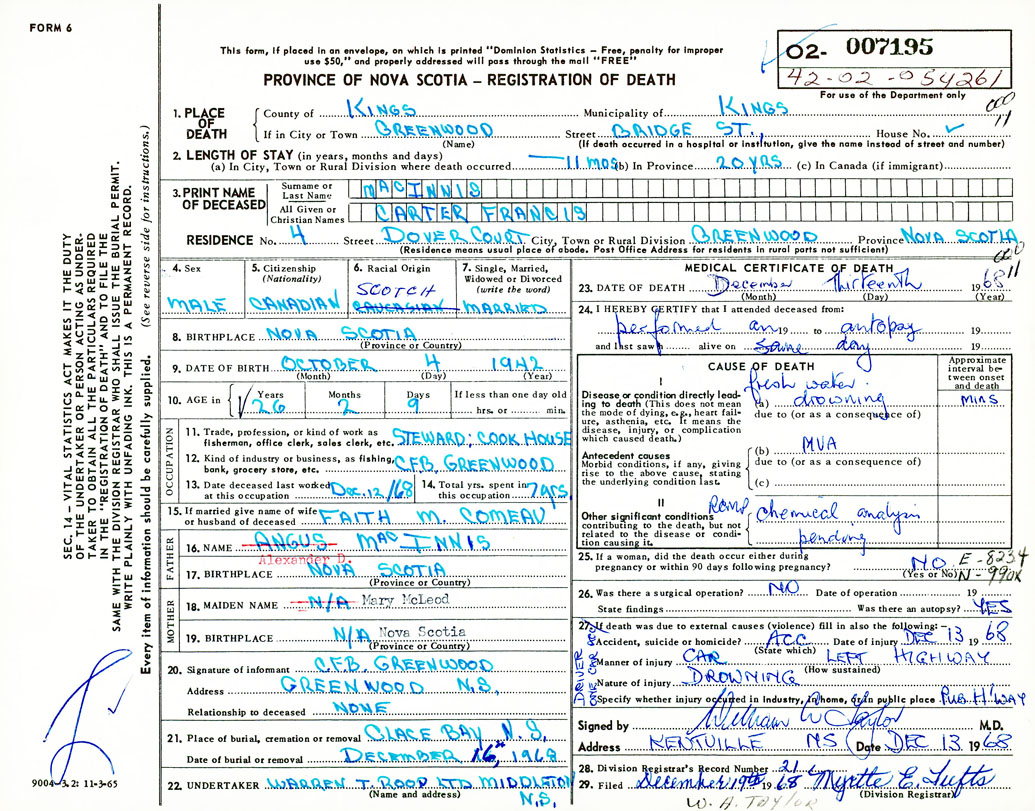 FORM 6
This form, if placed in an envelope, on which is printed "Dominion Statistics – Free, penalty for improper
use $50," and properly addressed will pass through the mail "FREE"
PROVINCE OF NOVA SCOTIA – REGISTRATION OF DEATH
O2- 007195
42-02-054261
For use of the Department only
1. PLACE OF DEATH
County of KINGS Municipality of KINGS
If in City or Town GREENWOOD Street BRIDGE ST., House No.
(Name) (If death occurred in a hospital or institution, give the name instead of street and number)
2. LENGTH OF STAY (in years, months and days)
(a) In City, Town or Rural Division where death occurred 11 MOS (b) In Province 20 YRS (c) In Canada (if immigrant)
3. PRINT NAME OF DECEASED
Surname or Last Name MACINNIS
All Given or Christian Names CARTER FRANCIS
RESIDENCE No. 4 Street DOVER COURT City, Town or Rural Division GREENWOOD Province NOVA SCOTIA
(Residence means usual place of abode. Post Office Address for residents in rural parts not sufficient)
4. Sex MALE
5. Citizenship (Nationality) CANADIAN
6. Racial Origin SCOTCH CAUCASIAN
7. Single, Married, Widowed or Divorced (write the word) MARRIED
8. BIRTHPLACE NOVA SCOTIA
(Province or Country)
9. DATE OF BIRTH OCTOBER 4 1942
(Month) (Day) (Year)
10. AGE in Years 26 Months 2 Days 9 If less than one day old
hrs. or min.
OCCUPATION
11. Trade, profession, or kind of work as fisherman, office clerk, sales clerk, etc. STEWARD; COOK HOUSE
12. Kind of industry or business, as fishing, bank, grocery store, etc. C.F.B. GREENWOOD
13. Date deceased last worked at this occupation Dec. 12/68
14. Total yrs. spent in this occupation 7 yrs.
15. If married give name of wife or husband of deceased FAITH M. COMEAU
FATHER
16. NAME ANGUS MACINNIS
Alexander D.
17. BIRTHPLACE NOVA SCOTIA
(Province or Country)
MOTHER
18. MAIDEN NAME N/A Mary McLeod
19. BIRTHPLACE N/A Nova Scotia
(Province or Country)
20. Signature of informant C.F.B. GREENWOOD
Address GREENWOOD N.S.
Relationship to deceased NONE
21. Place of burial, cremation or removal GLACE BAY, N.S.
Date of burial or removal DECEMBER 16, 1968
22. UNDERTAKER WARREN T. ROOP LTD MIDDLETON
(Name and address) N.S.
MEDICAL CERTIFICATE OF DEATH
23. DATE OF DEATH December thirteenth 1968
(Month) (Day) (Year)
24. I HEREBY CERTIFY that I attended deceased from:
performed an 19 to autopsy 19
and last saw h alive on same day 19
CAUSE OF DEATH
Approximate interval between onset and death
I
fresh water
Disease or condition directly leading to death (This does not mean the mode of dying, e.g., heart failure, asthenia, etc. It means the disease, injury, or complication which caused death.)
(a) drowning MINS
due to (or as a consequence of)
Antecedent causes
Morbid conditions, if any, giving rise to the above cause, stating the underlying condition last.
(b) MVA
due to (or as a consequence of)
(c)
II
Other significant conditions contributing to the death, but not related to the disease or condition causing it.
RCMP chemical analysis
pending
25. If a woman, did the death occur either during pregnancy or within 90 days following pregnancy? NO
(Yes or No)
E-8234
N-990X
26. Was there a surgical operation? NO Date of operation 19
State findings Was there an autopsy? YES
27. If death was due to external causes (violence) fill in also the following:–
Accident, suicide or homicide? ACC Date of injury DEC 13 1968
(State which)
Manner of injury CAR LEFT HIGHWAY
(How sustained)
Nature of injury DROWNING
Specify whether injury occurred in industry, in home, or in public place PUB. H'WAY
DRIVER
ONE CAR ACC
Signed by William W Taylor M.D.
Address KENTVILLE NS Date DEC 13 1968
28. Division Registrar's Record Number
29. Filed December 19th 1968 Myrtle E. Tufts
(Division Registrar)
W. A. TAYLOR
SEC. 14 – VITAL STATISTICS ACT MAKES IT THE DUTY
OF THE UNDERTAKER OR PERSON ACTING AS UNDERTAKER TO OBTAIN ALL THE PARTICULARS REQUIRED
IN THE "REGISTRATION OF DEATH" AND TO FILE THE
SAME WITH THE DIVISION REGISTRAR WHO SHALL ISSUE THE BURIAL PERMIT.
WRITE PLAINLY WITH UNFADING INK. THIS IS A PERMANENT RECORD.
Every item of information should be carefully supplied. (See reverse side for instructions.)
9004-3.2: 11-3-65